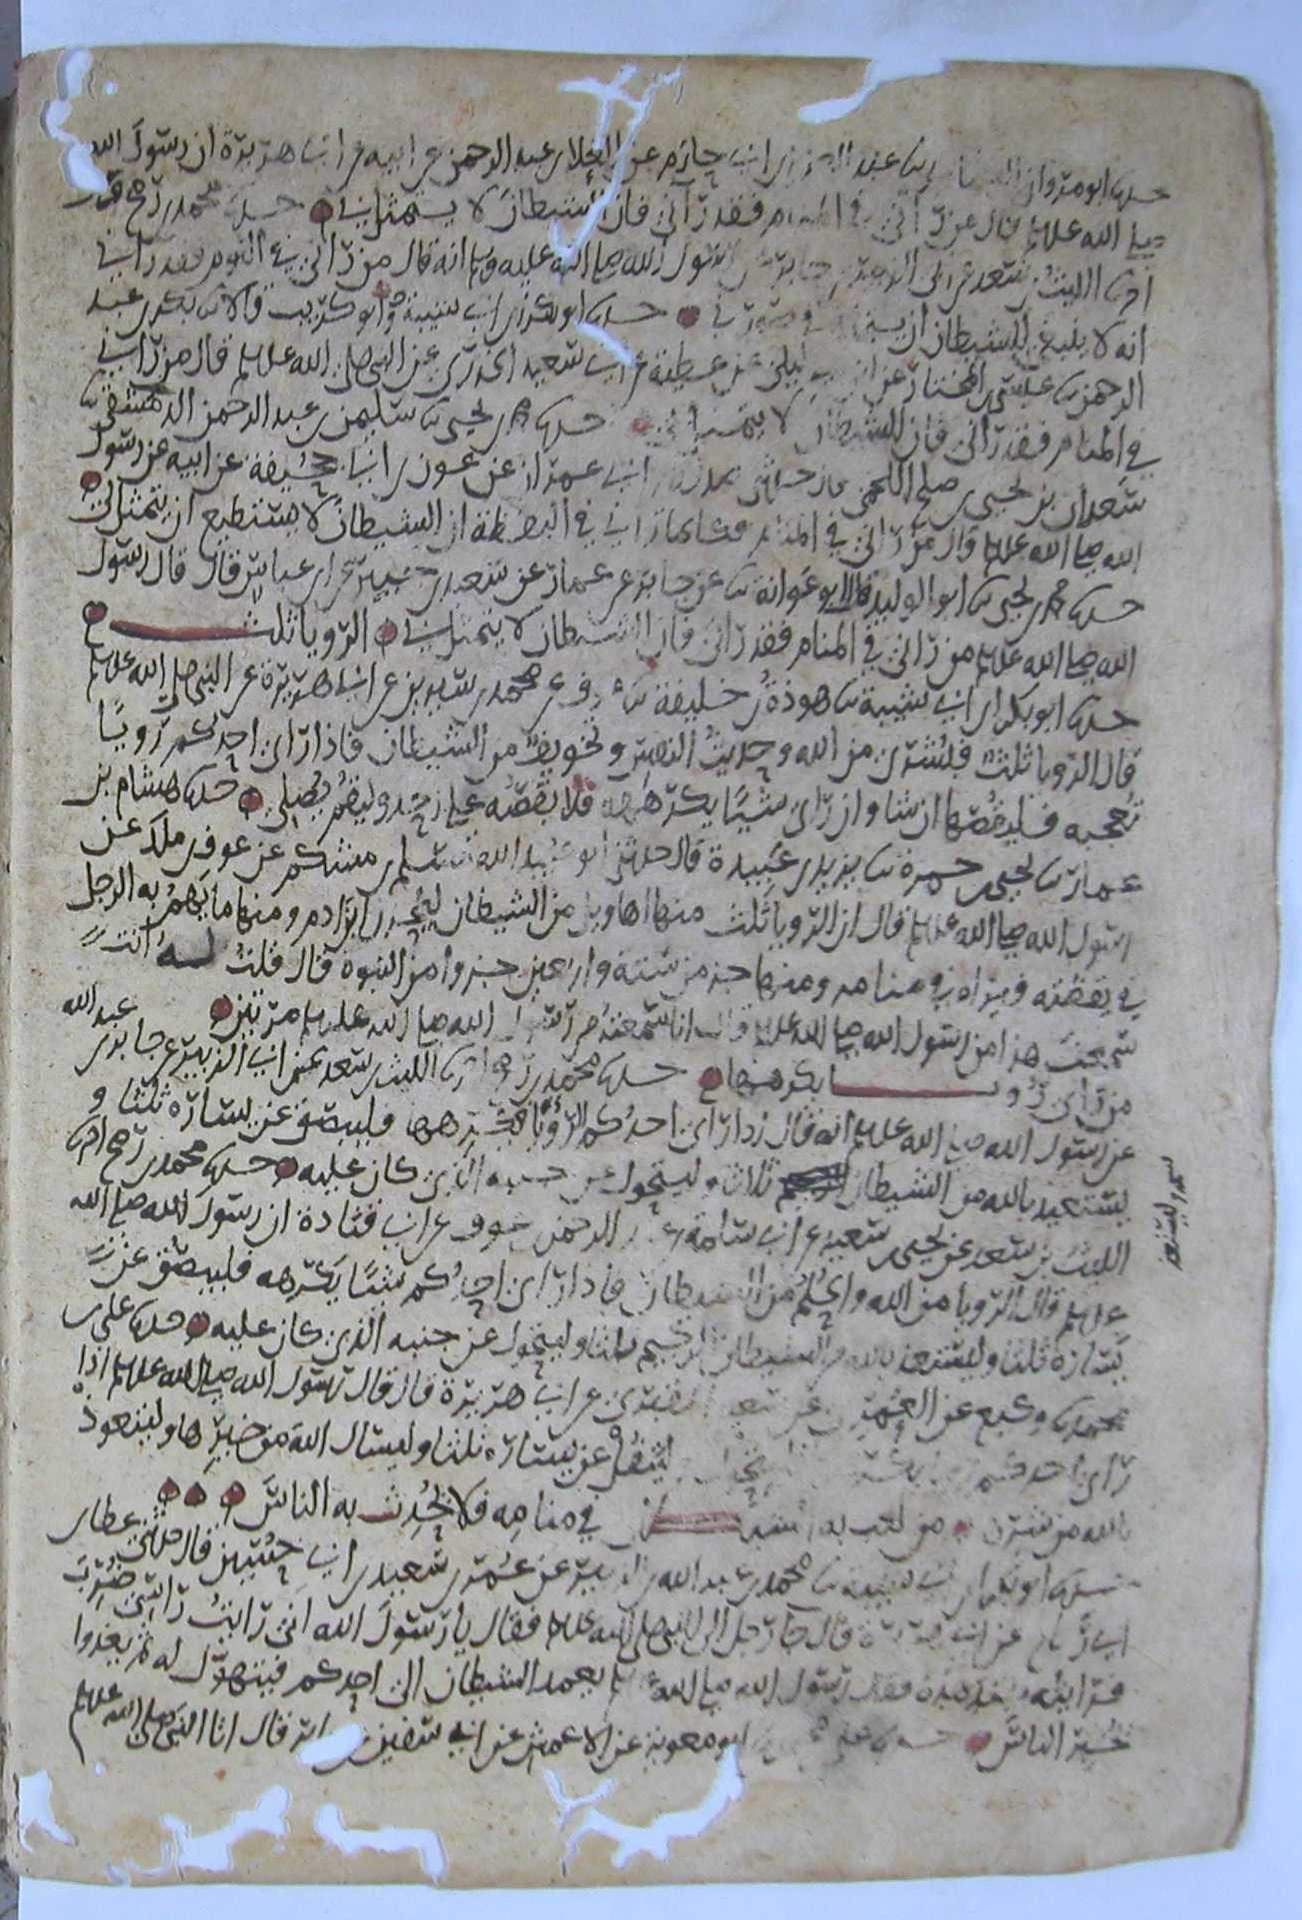 حدثنا ابو مروان عبد العزيز بن ابي حازم عن العلا بن عبد الرحمن عن ابيه عن ابي هريرة ان رسول الله
صلى الله عليه وسلم قال من رآني في المنام فقد رآني فان الشيطان لا يتمثل بي حدثنا محمد بن رمح
انا الليث بن سعد عن ابي الزبير عن جابر عن رسول الله صلى الله عليه وسلم انه قال من رآني في النوم فقد رآني
انه لا ينبغي للشيطان ان في صورتي حدثنا ابو بكر بن ابي شيبة وابو كريب قالا ثنا بكر بن عبد
الرحمن ثنا عيسى بن المختار عن ابن ابي ليلى عن عطية عن ابي سعيد الخدري عن النبي صلى الله عليه وسلم قال من رآني
في المنام فقد رآني فان الشيطان لا يتمثل بي حدثنا محمد بن يحيى ثنا سليمن بن عبد الرحمن الدمشقي ثنا
سعدان بن يحيى بن صلح اللخمي حدثني صدقة بن ابي عمران عن عون بن ابي جحيفة عن ابيه عن رسول
الله صلى الله عليه وسلم قال من رآني في المنام فكانما رآني في اليقظة ان الشيطان لا يستطيع ان يتمثل بي
حدثنا محمد بن يحيى ثنا ابو الوليد قال ابو عوانة ثنا عن جابر عن عمار عن سعيد بن جبير عن ابن عباس قال قال رسول
الله صلى الله عليه وسلم من رآني في المنام فقد رآني فان الشيطان لا يتمثل بي الرويا ثلث
حدثنا ابو بكر بن ابي شيبة ثنا هوذة بن خليفة ثنا عوف عن محمد بن سيرين عن ابي هريرة عن النبي صلى الله عليه وسلم
قال الرويا ثلث فبشرى من الله وحديث النفس وتخويف من الشيطان فاذا راى احدكم رويا
تعجبه فليقصها ان شا وان راى شيئا يكرهه فلا يقصه على احد وليقم يصلي حدثنا هشام بن
عمار ثنا يحيى بن حمزة ثنا يزيد بن عبيدة قال حدثني ابو عبيد الله مسلم بن مشكم عن عوف بن ملك عن
رسول الله صلى الله عليه وسلم قال ان الرويا ثلث منها اهاويل من الشيطان ليحزن بها ابن ادم ومنها ما يهم به الرجل
في يقظته فيراه في منامه ومنها جز من ستة واربعين جزوا من النبوة قال قلت له انت
سمعت هذا من رسول الله صلى الله عليه وسلم قال انا سمعته من رسول الله صلى الله عليه وسلم مرتين
من راى رويا يكرهها حدثنا محمد بن رمح انا الليث بن سعد عن ابي الزبير عن جابر بن عبد الله
عن رسول الله صلى الله عليه وسلم انه قال اذا راى احدكم الرؤيا يكرهها فليبصق عن يساره ثلثا و
يستعيذ بالله من الشيطان ثلاثا وليتحول عن جنبه الذي كان عليه حدثنا محمد بن رمح انا
الليث بن سعد عن يحيى بن سعيد عن ابي سلمة بن عبد الرحمن بن عوف عن ابي قتادة ان رسول الله صلى الله
عليه وسلم قال الرويا من الله والحلم من الشيطان فاذا راى احدكم شيئا يكرهه فليبصق عن
يساره ثلثا وليستعذ بالله من الشيطان الرجيم ثلثا وليتحول عن جنبه الذي كان عليه حدثنا علي بن
محمد ثنا وكيع عن العمري عن سعيد المقبري عن ابي هريرة قال قال رسول الله صلى الله عليه وسلم اذا
راى احدكم وليتفل عن يساره ثلثا وليسال الله من خيرها وليتعوذ
بالله من شرها من لعب به الشيطان في منامه فلا يحدث به الناس
حدثنا ابو بكر بن ابي شيبة ثنا محمد بن عبد الله بن الزبير عن عمر بن سعيد بن ابي حسين قال حدثني عطا بن
ابي رباح عن ابي هريرة قال جا رجل الى النبي صلى الله عليه وسلم فقال يا رسول الله اني رايت راسي ضرب
فرايته يتدهده فقال رسول الله صلى الله عليه وسلم يعمد الشيطان الى احدكم فيتهول له ثم يغدوا
يخبر الناس حدثنا علي بن محمد ثنا ابو معوية عن الاعمش عن ابي سفين عن جابر قال اتا النبي صلى الله عليه وسلم